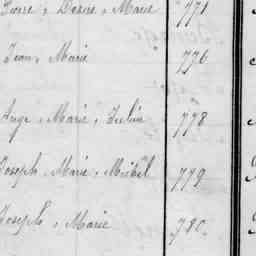 Pierre, Désiré, Marie 771
Jean, Marie 776
Ange, Marie, Julien 778
Joseph, Marie, Michel 779
Joseph, Marie 780.